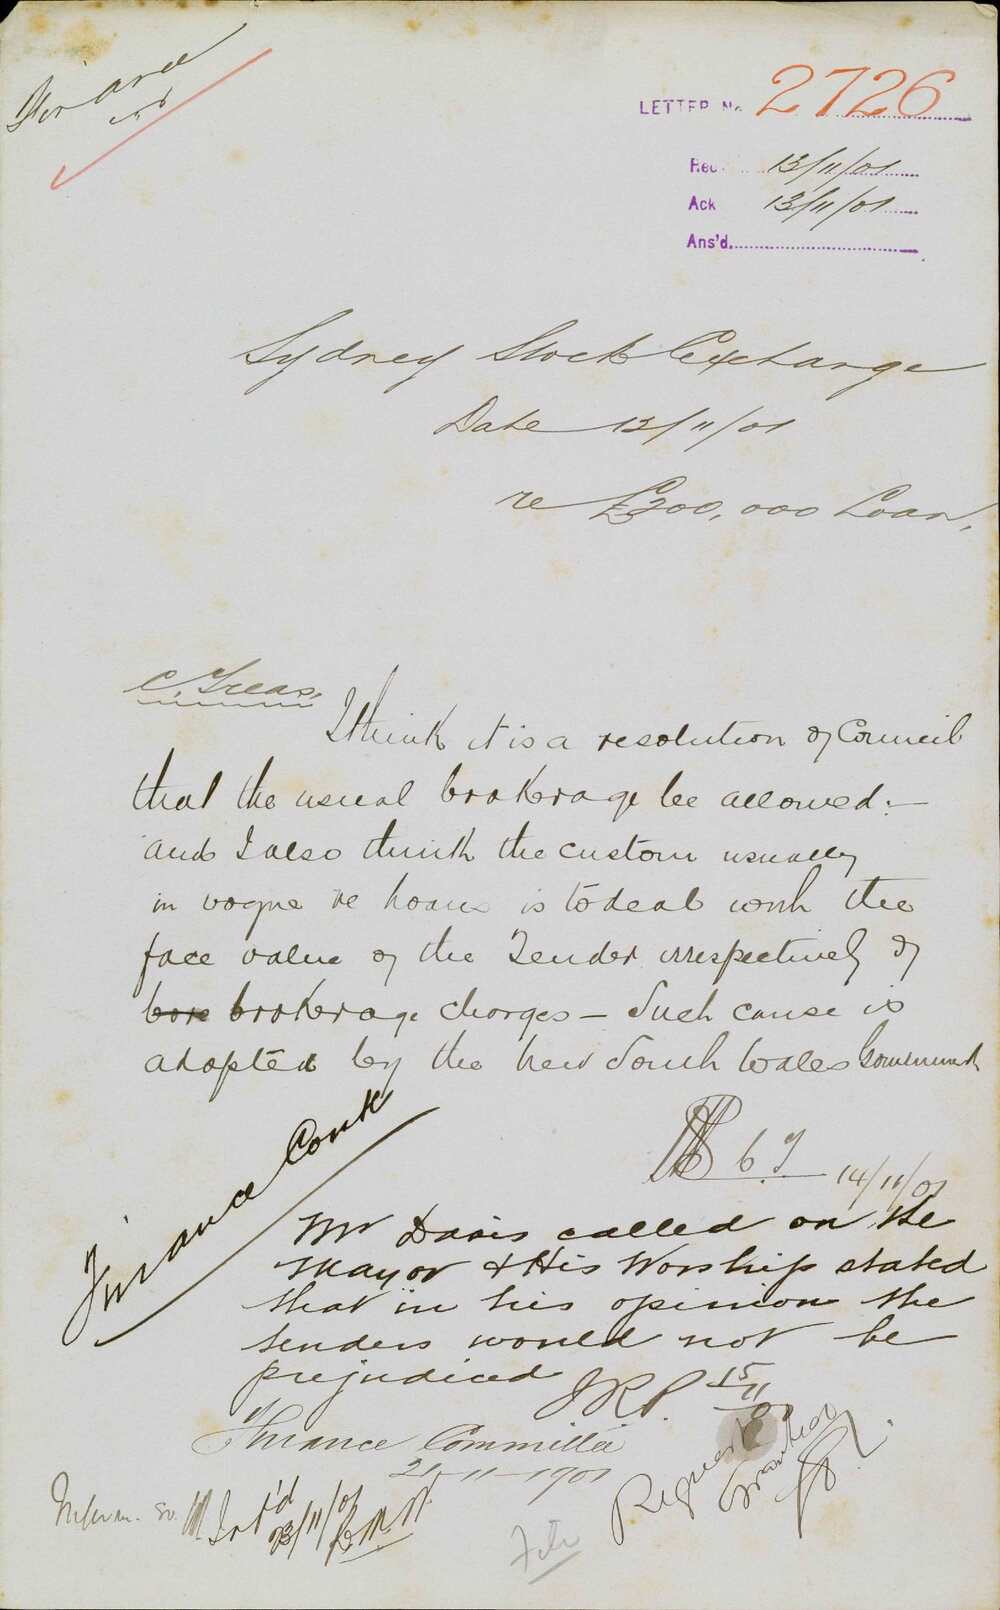 Finance
LETTER No 2726
Rec 13/11/01
Ack 13/11/01
Ans'd
Sydney Stock Exchange
Date 13/11/01
re £200,000 Loan.
C. Treas.
I think it is a resolution of Council
that the usual brokerage be allowed:—
and I also think the custom usually
in vogue re loans is to deal with the
face value of the Tender irrespectively of
bore brokerage charges — Such cause is
adopted by the New South Wales Government
14/11/01
Finance Comte
Mr Davis called on the
Mayor & His Worship stated
that in his opinion the
tenders would not be
prejudiced JRP. 15/11/01
Finance Committee
21-11-1901
Request
Inform. so.
Int'd
23/11/01
File